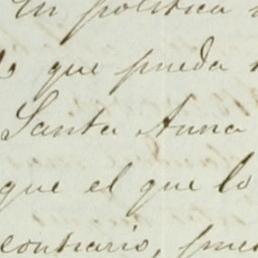 En politica
que pueda
Santa Anna
que el que lo
contrario, pue